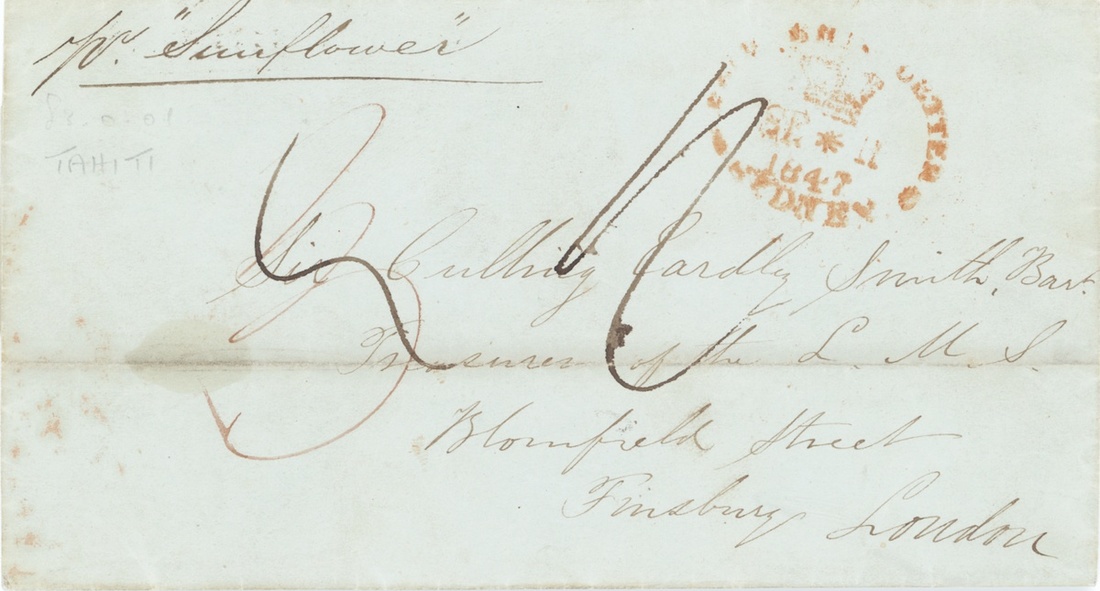 pr. "Sunflower"
TAHITI
SHIP LETTER
SE * 11
1847
SYDNEY
3
Sir Culling Eardley Smith, Bart.
Treasurer of the L. M. S.
Blomfield Street
Finsbury London